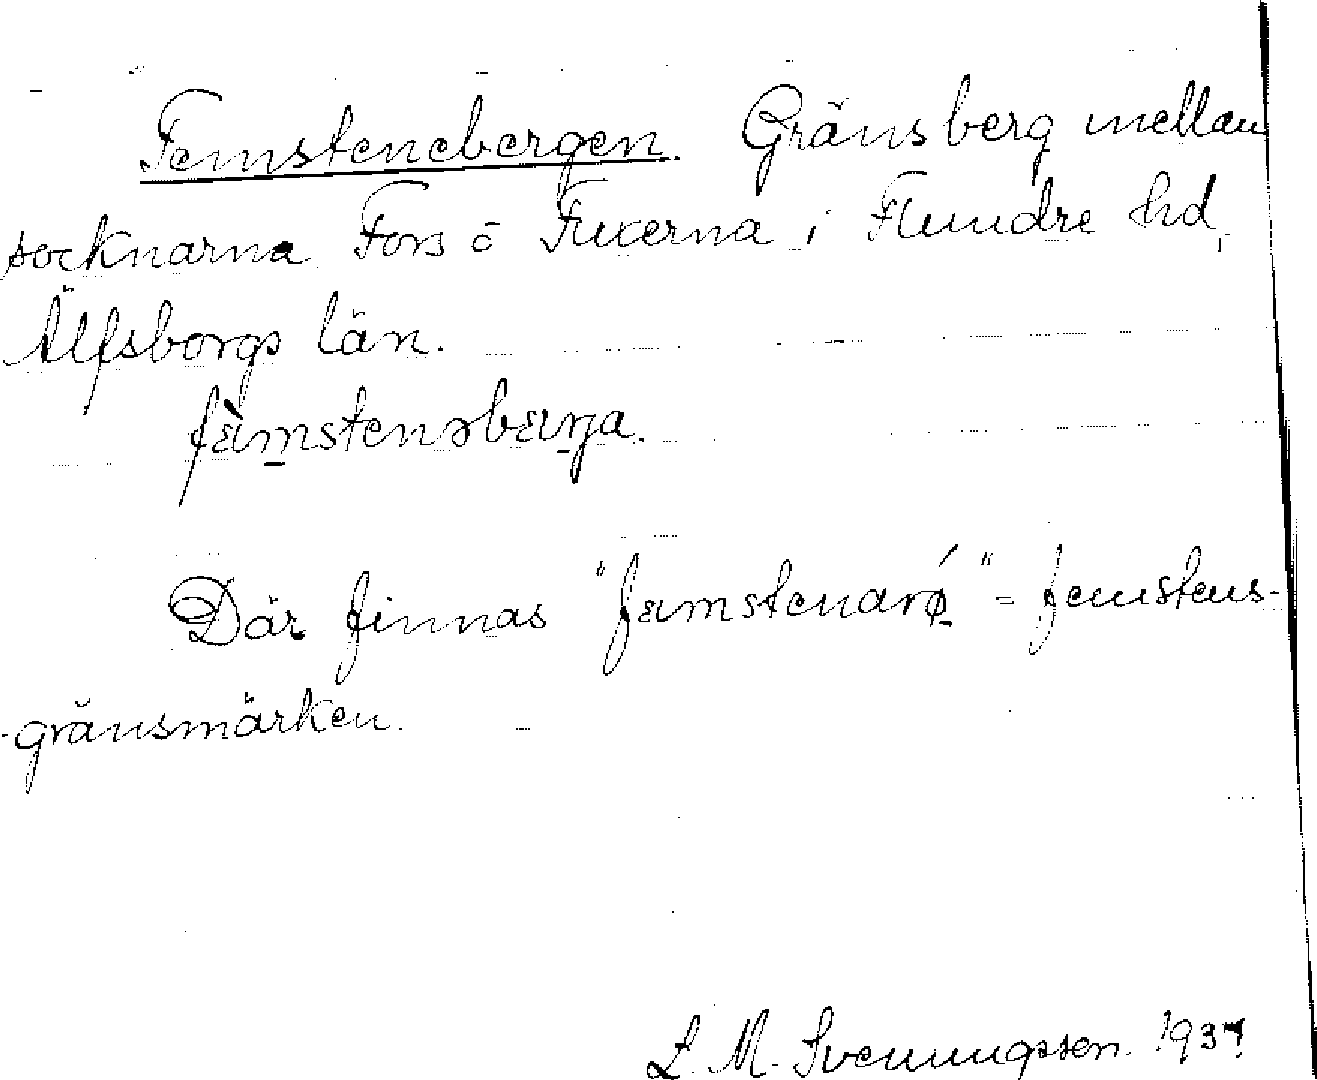 Femstenebergen. Gränsberg mellan
socknarna Fors o Fuxerna i Flundre hd,
Älfsborgs län.
fæ̀mstenəbærja.
Där finnas "fæmstenarǿ" = femstens-
-gränsmärken.
L. M. Svenungsson. 1937